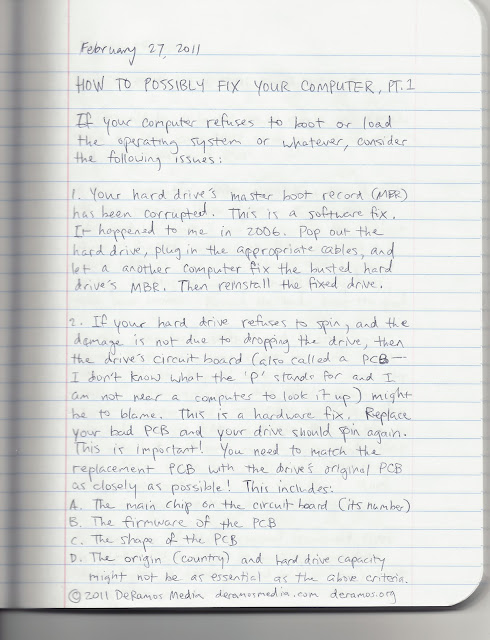 February 27, 2011
HOW TO POSSIBLY FIX YOUR COMPUTER, PT.1
If your computer refuses to boot or load
the operating system or whatever, consider
the following issues:
1. Your hard drive's master boot record (MBR)
has been corrupted. This is a software fix.
It happened to me in 2006. Pop out the
hard drive, plug in the appropriate cables, and
let a another computer fix the busted hard
drive's MBR. Then reinstall the fixed drive.
2. If your hard drive refuses to spin, and the
damage is not due to dropping the drive, then
the drive's circuit board (also called a PCB—
I don't know what the 'P' stands for and I
am not near a computer to look it up) might
be to blame. This is a hardware fix. Replace
your bad PCB and your drive should spin again.
This is important! You need to match the
replacement PCB with the drive's original PCB
as closely as possible! This includes:
A. The main chip on the circuit board (its number)
B. The firmware of the PCB
C. The shape of the PCB
D. The origin (country) and hard drive capacity
might not be as essential as the above criteria.
© 2011 DeRamos Media deramosmedia.com deramos.org